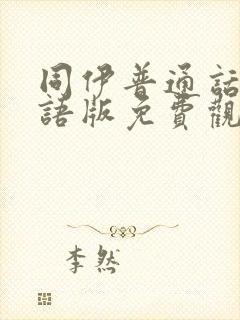 同伊普通話
語版免費觀
李然